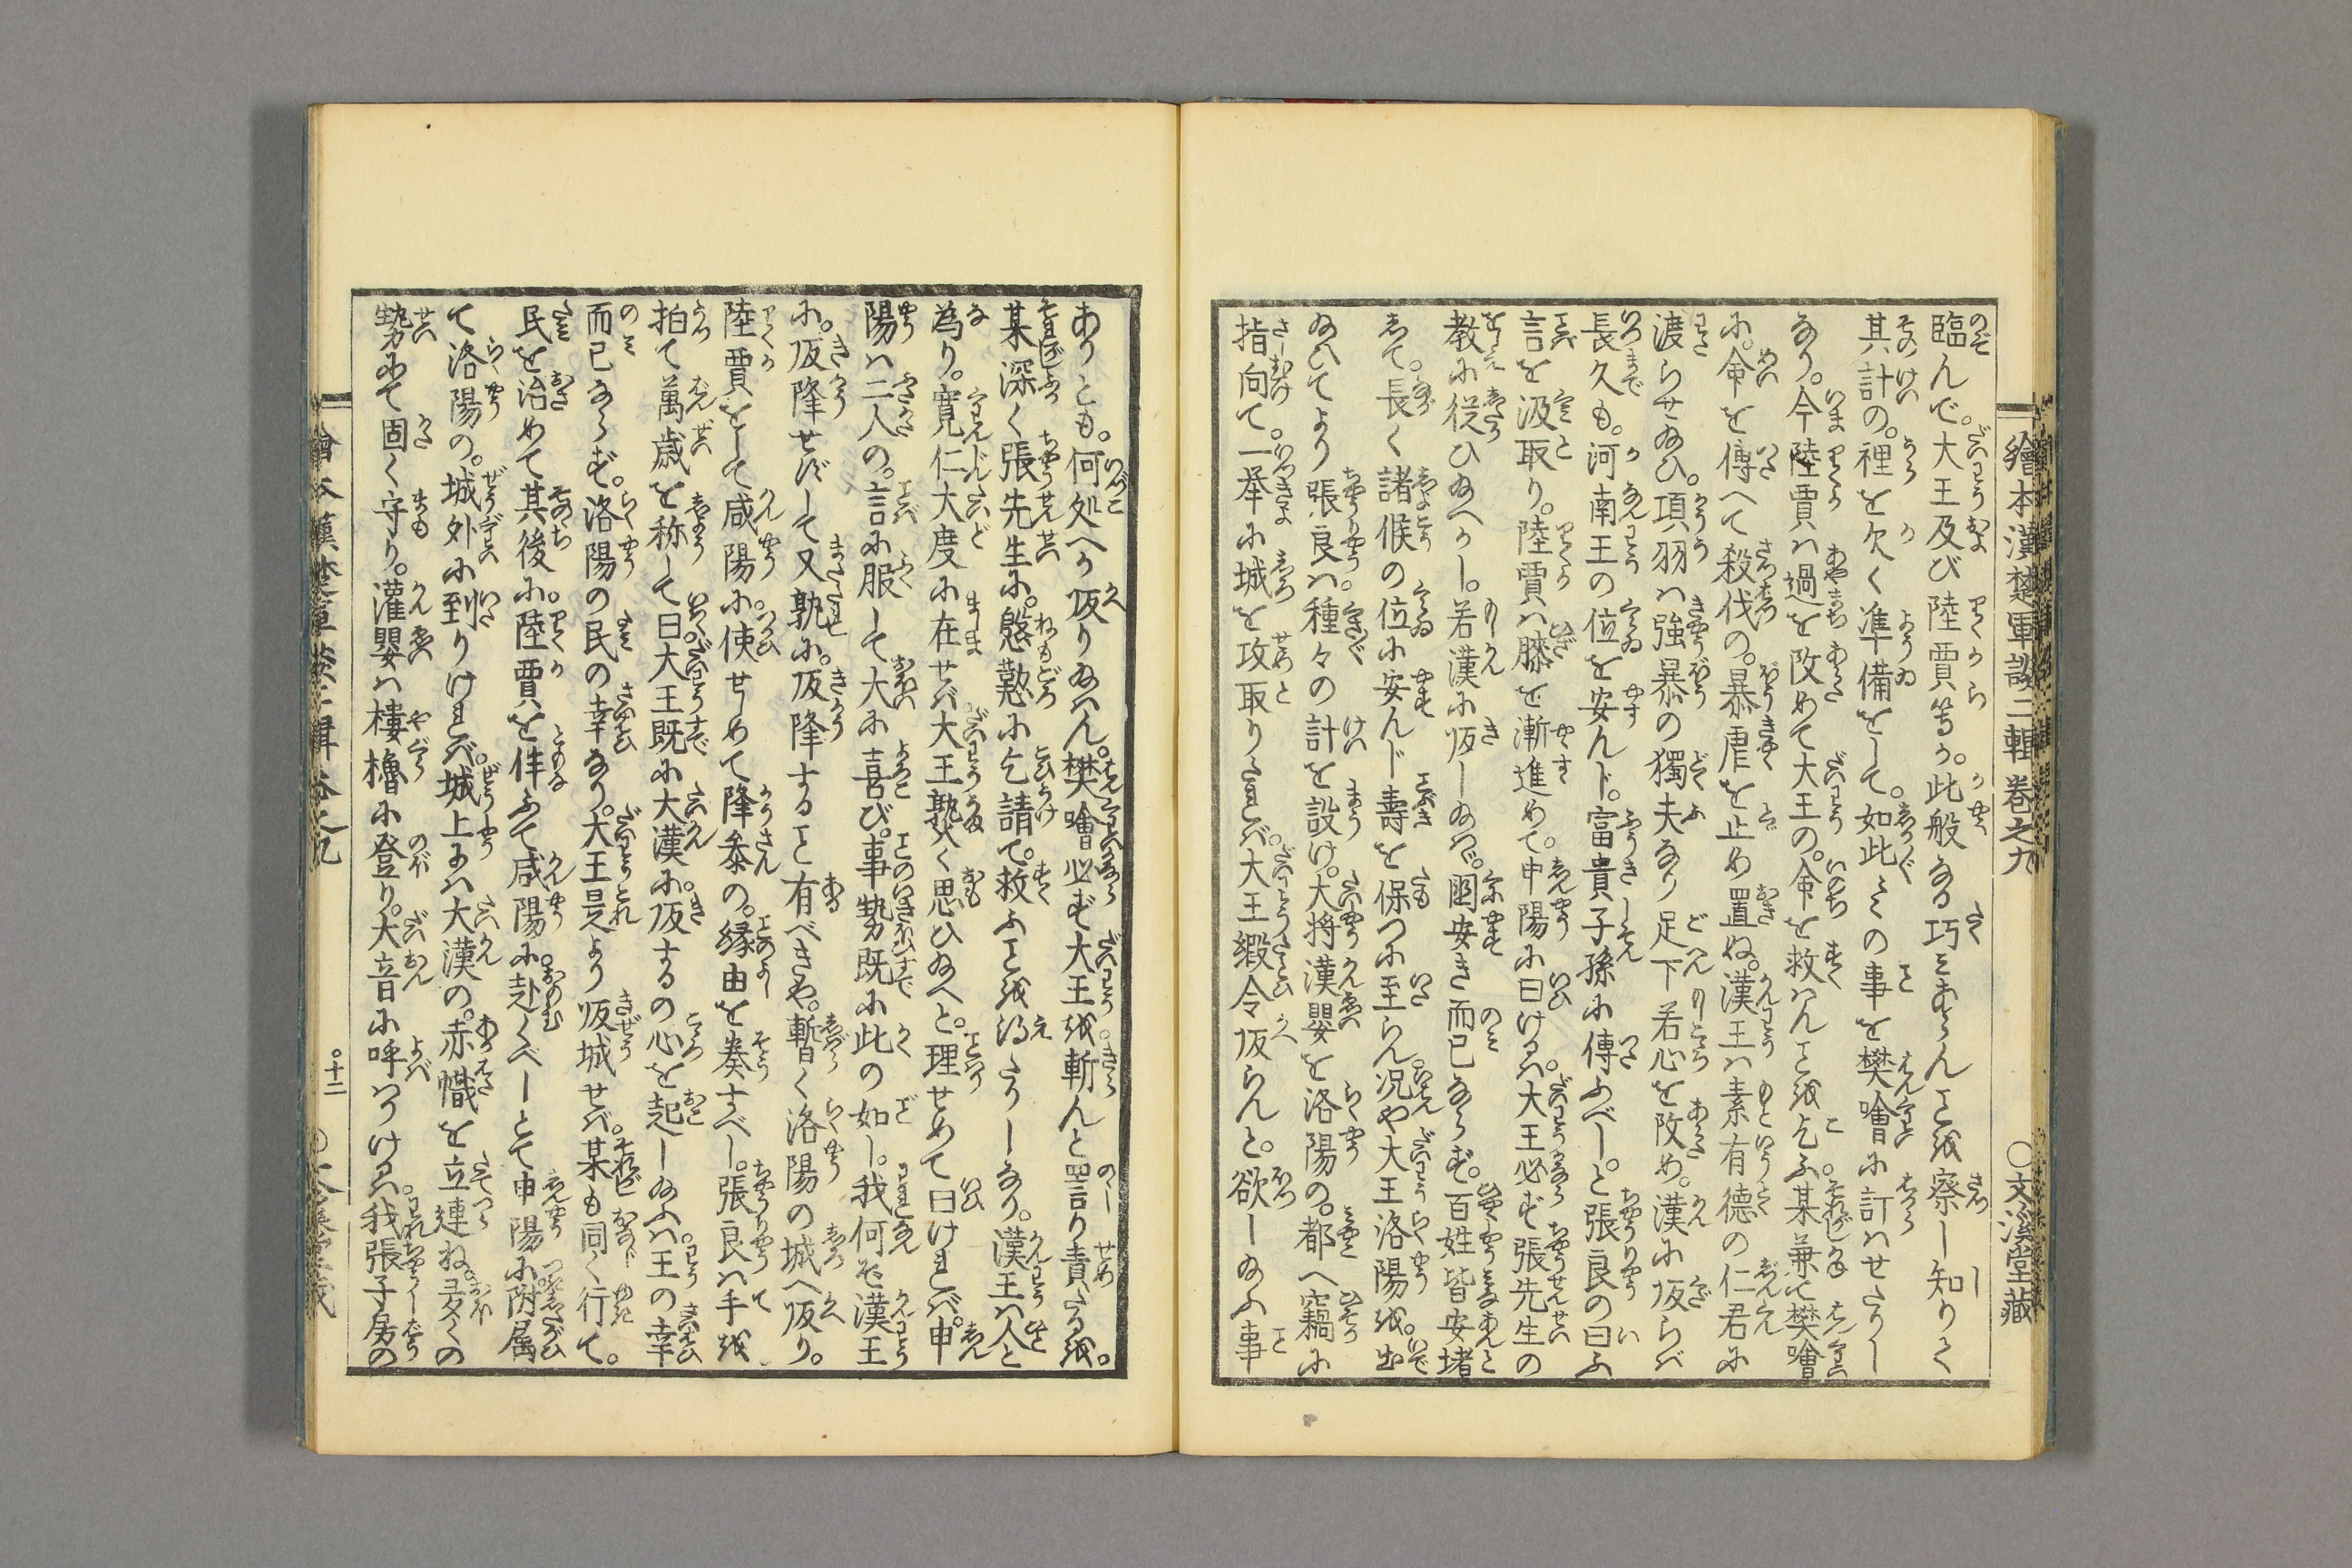 繪本漢楚軍談二輯 卷之九 ○文溪堂藏
臨んで。大王及び陸賈等が。此般なる巧こあらんこと越察し知りて
其計の。裡を欠く準備をして。如此々の事を樊噲に計はせたりし
なり。今陸賈は過を改めて大王の。命を救はんこと越乞ふ。某兼て樊噲
に。命を傳へて殺伐の。暴虐を止め置ぬ。漢王は素有德の仁君に
渡らせ給ひ。項羽は強暴の獨夫なり足下若心を改め。漢に皈らば
長久も。河南王の位を安んド。富貴子孫に傳ふべし。と張良の曰ふ
言を汲取り。陸賈は膝を漸進めて。申陽に曰けるは。大王必ず張先生の
教に従ひ給へかし。若漢に皈し給はゞ。國安き而已ならず。百姓皆安堵
して。長く諸候の位に安んド壽を保つに至らん。况や大王洛陽越。出
給ひてより張良は。種々の計を設け。大将漢嬰を洛陽の。都へ竊に
指向て。一举に城を攻取りたれば。大王縦令皈らんと。欲し給ふ事
ありとも。何処へか皈り給はん。樊噲必ず大王越。斬んと詈り責たる越。
某深く張先生に。慇懃に乞請て。救ふこと越得たりしなり。漢王は人と
為り。寛仁大度に在せば大王熟く思ひ給へと。理せめて曰ければ。申
陽は二人の。言に服して大に喜び。事勢既に此の如し。我何ぞ漢王
に。皈降せずして又孰に。皈降すること有べきや。暫く洛陽の城へ皈り。
陸賈をして咸陽に。使せしめて降叅の。縁由を奏すべし。張良は手越
拍て萬歳を称して曰大王既に大漢に。皈するの心を起し給ふは。王の幸
而已ならず。洛陽の民の幸なり。大王是より皈城せば。某も同く行て。
民を治めて其後に。陸賈を伴ふて咸陽に。赴くべしとて申陽に。附属
て洛陽の。城外に到りければ。城上には大漢の。赤幟を立連ね。夛くの
勢にて固く守り。灌嬰は樓櫓に登り。大音に呼はりけるは。我張子房の
十二